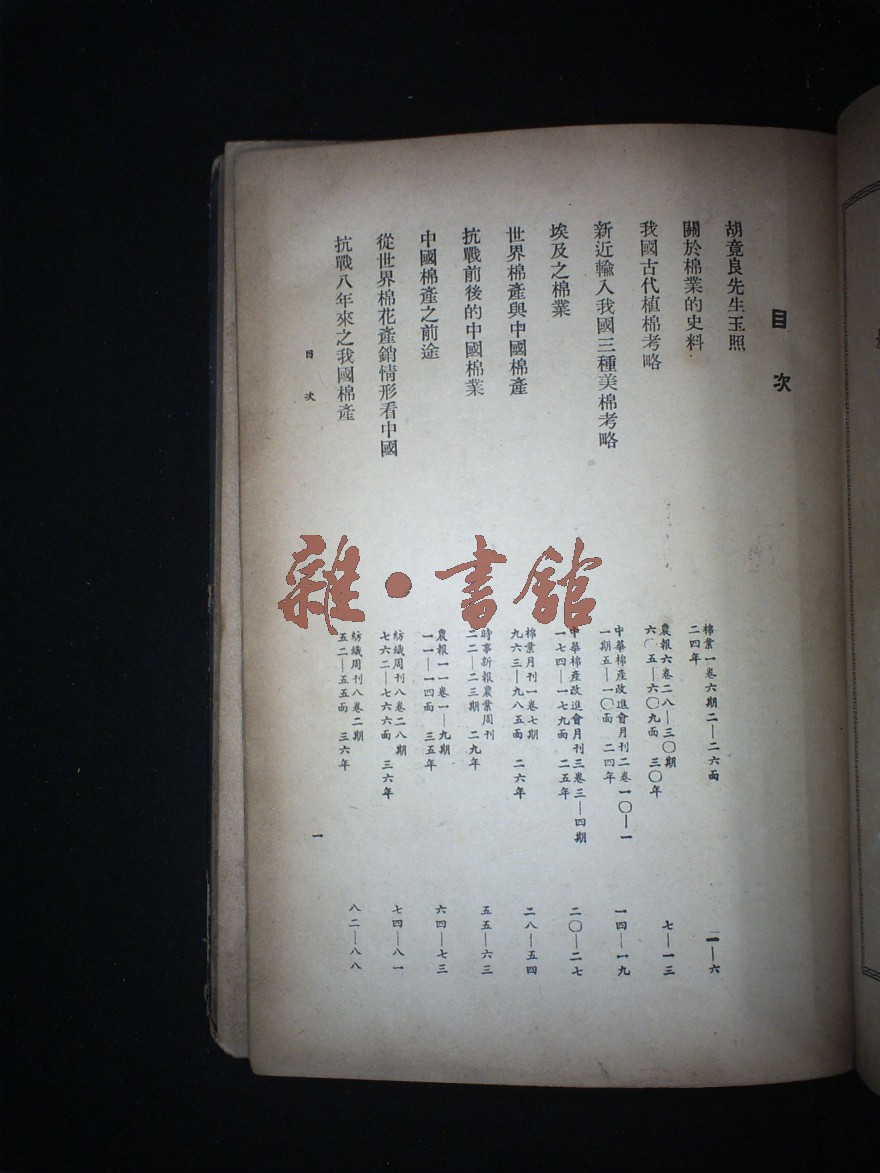 目次
胡竟良先生玉照
關於棉業的史料
棉業一卷六期二—二六面
二四年
一—六
我國古代植棉考略
農報六卷二八—三〇期
六〇五—六〇九面 三〇年
七—一三
新近輸入我國三種美棉考略
中華棉產改進會月刊二卷一〇—一
一期五—一〇面 二四年
一四—一九
埃及之棉業
中華棉產改進會月刊三卷三—四期
一七四—一七九面 二五年
二〇—二七
世界棉產與中國棉產
棉業月刊一卷七期
九六三—九八五面 二六年
二八—五四
抗戰前後的中國棉業
時事新報農業周刊
二二—二三期 二九年
五五—六三
中國棉產之前途
農報一一卷一—九期
一一—一四面 三五年
六四—七三
從世界棉花產銷情形看中國
紡織周刊八卷二八期
七六二—七六六面 三六年
七四—八一
抗戰八年來之我國棉產
紡織周刊八卷二期
五二—五五面 三六年
八二—八八
目次
一
雜·書館